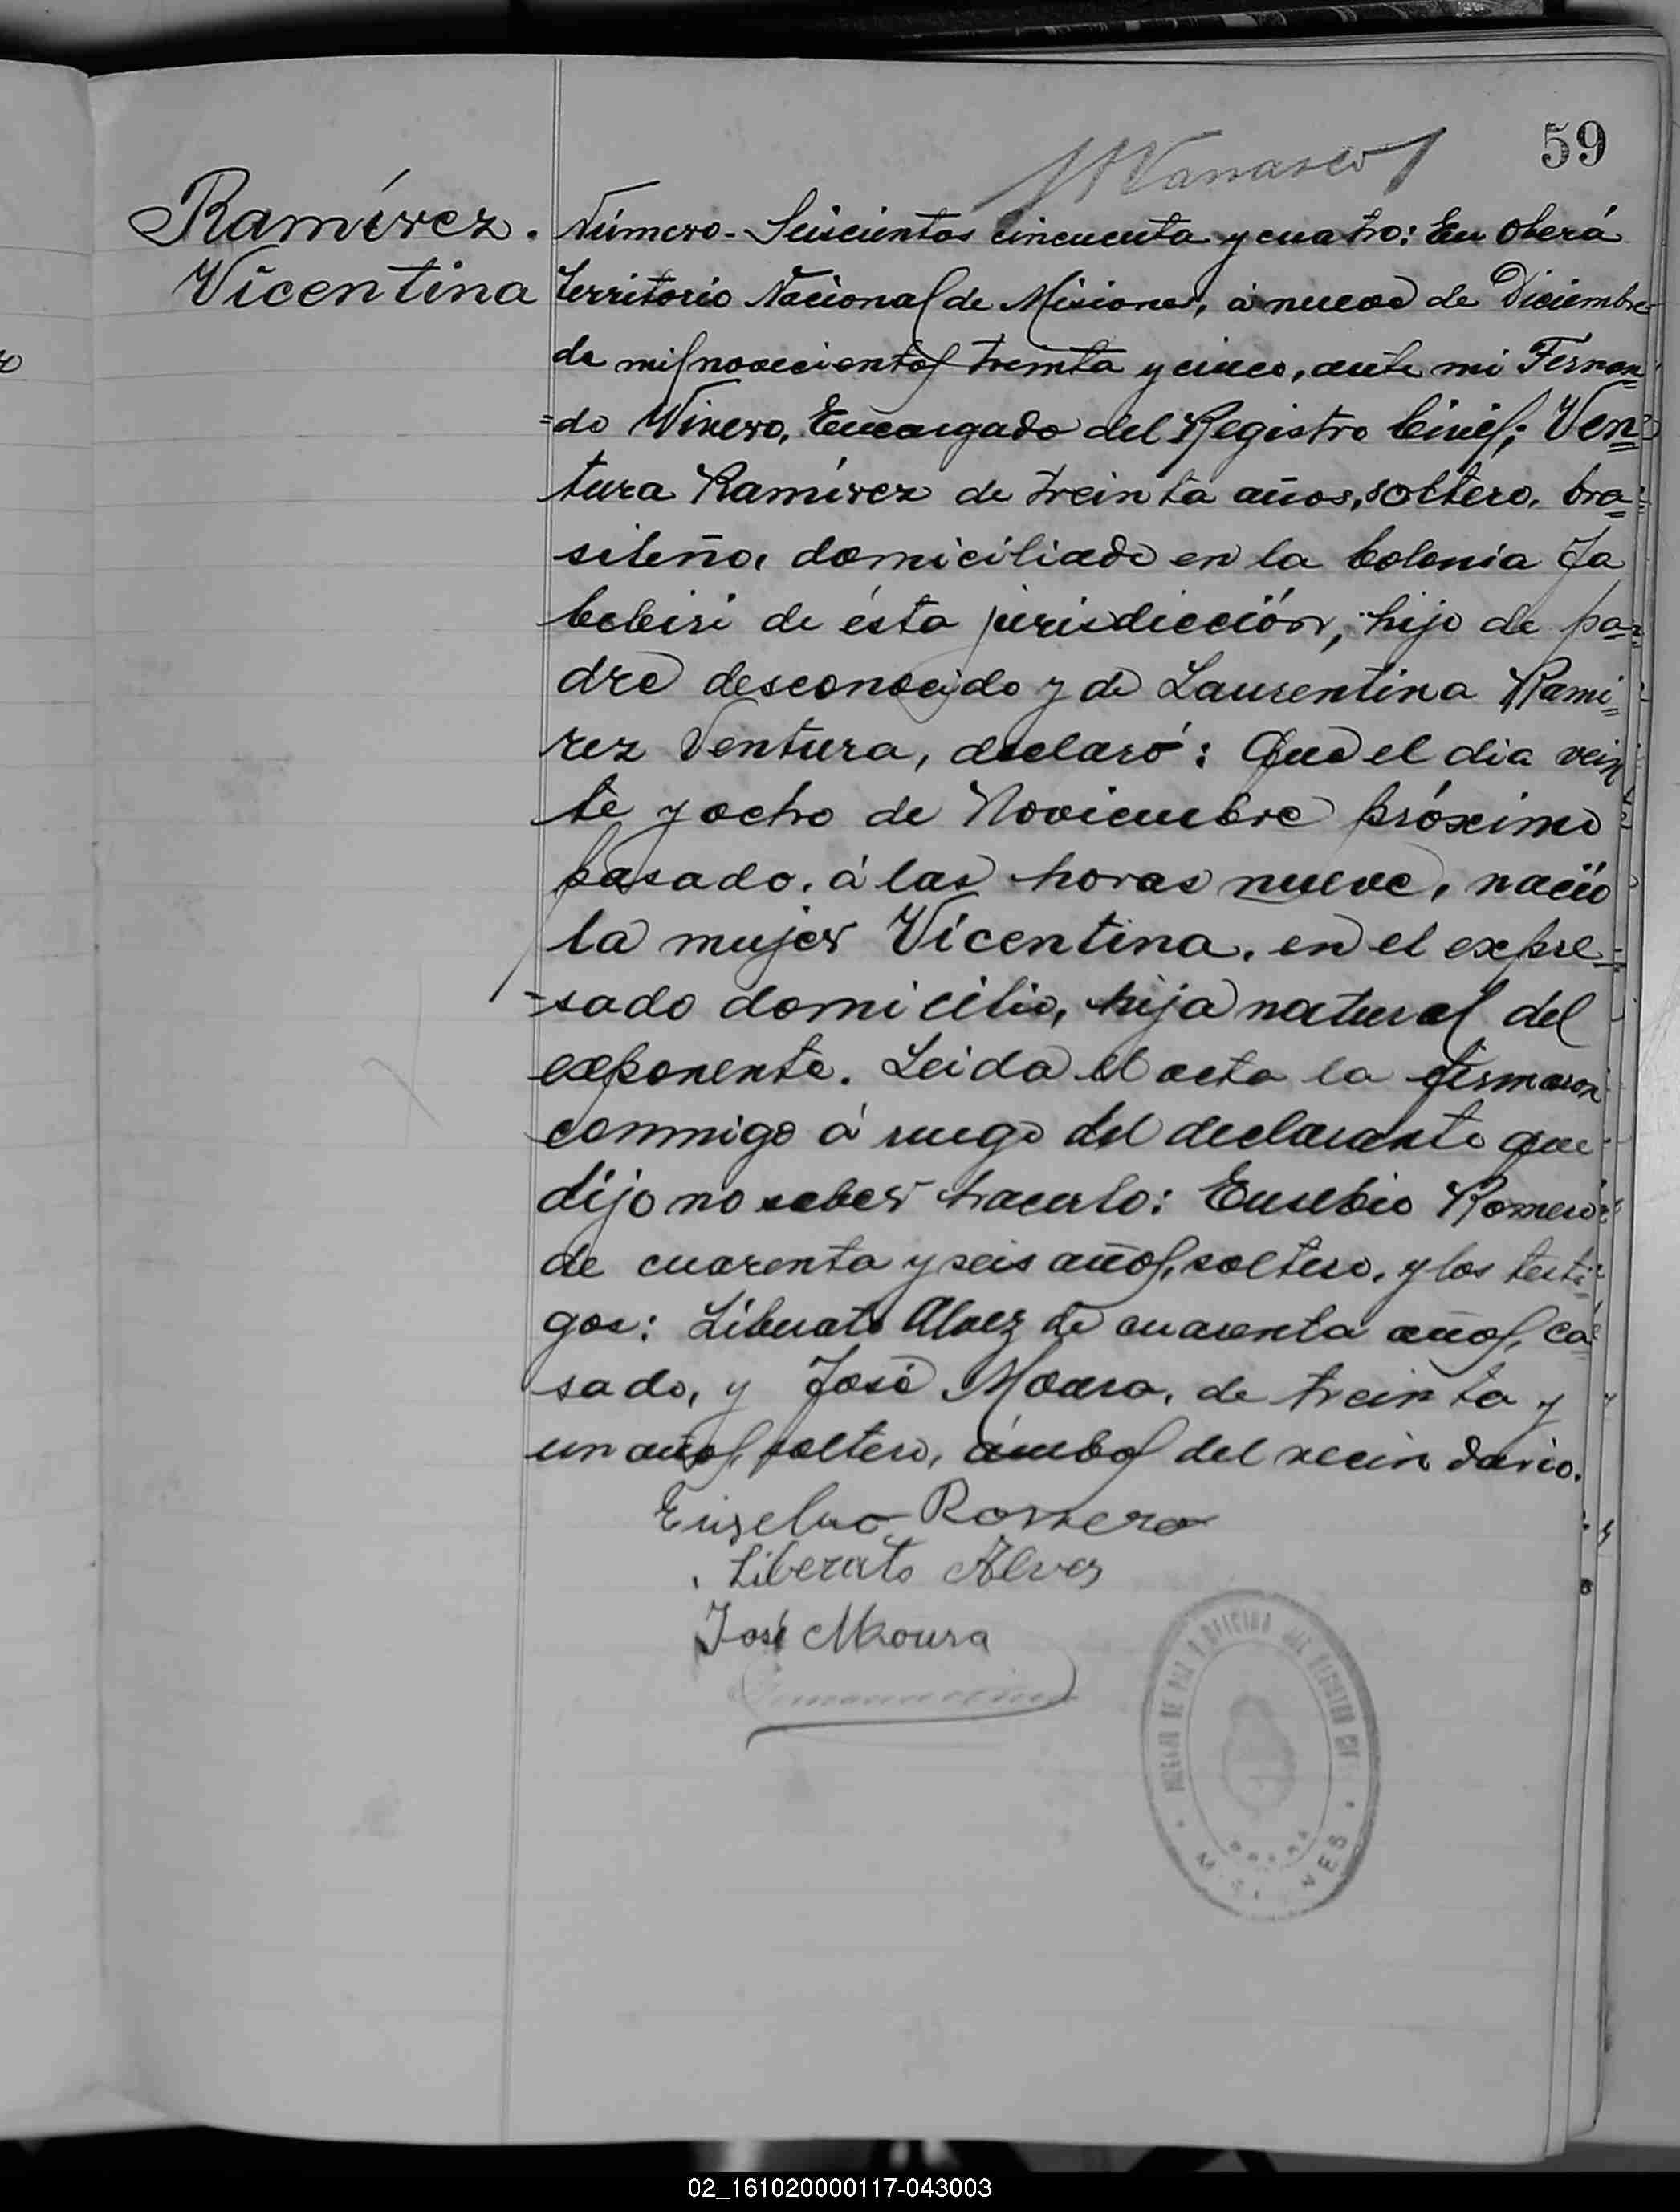 59
Ramírez.
Vicentina
Número- Seiscientos cincuenta y cuatro: En Oberá
Territorio Nacional de Misiones, á nueve de Diciembre
de mil novecientos treinta y cinco, ante mi Fernan
=do Vivero, Encargado del Registro Civil; Ven=
tura Ramírez de treinta años, soltero, bra=
sileño, domiciliado en la Colonia Ja
bebiri de ésta jurisdicción, hijo de pa=
dre desconocido y de Laurentina Rami=
rez Ventura, declaró: Que el dia vein
te y ocho de Noviembre próximo
pasado, á las horas nueve, nació
la mujer Vicentina, en el expre=
=sado domicilio, hija natural del
exponente. Leida el acta la firmaron
conmigo á ruego del declarante que
dijo no saber hacerlo: Eusebio Romero
de cuarenta y seis años, soltero, y los testi=
gos: Liberato Alvez de cuarenta años, ca=
sado, y José Moura, de treinta y
un años, soltero, ámbos del vecindario.
Eusebio Romero
Liberato Alves
José Moura
JUZGADO DE PAZ Y OFICINA DEL REGISTRO CIVIL
MISIONES
02_161020000117-043003